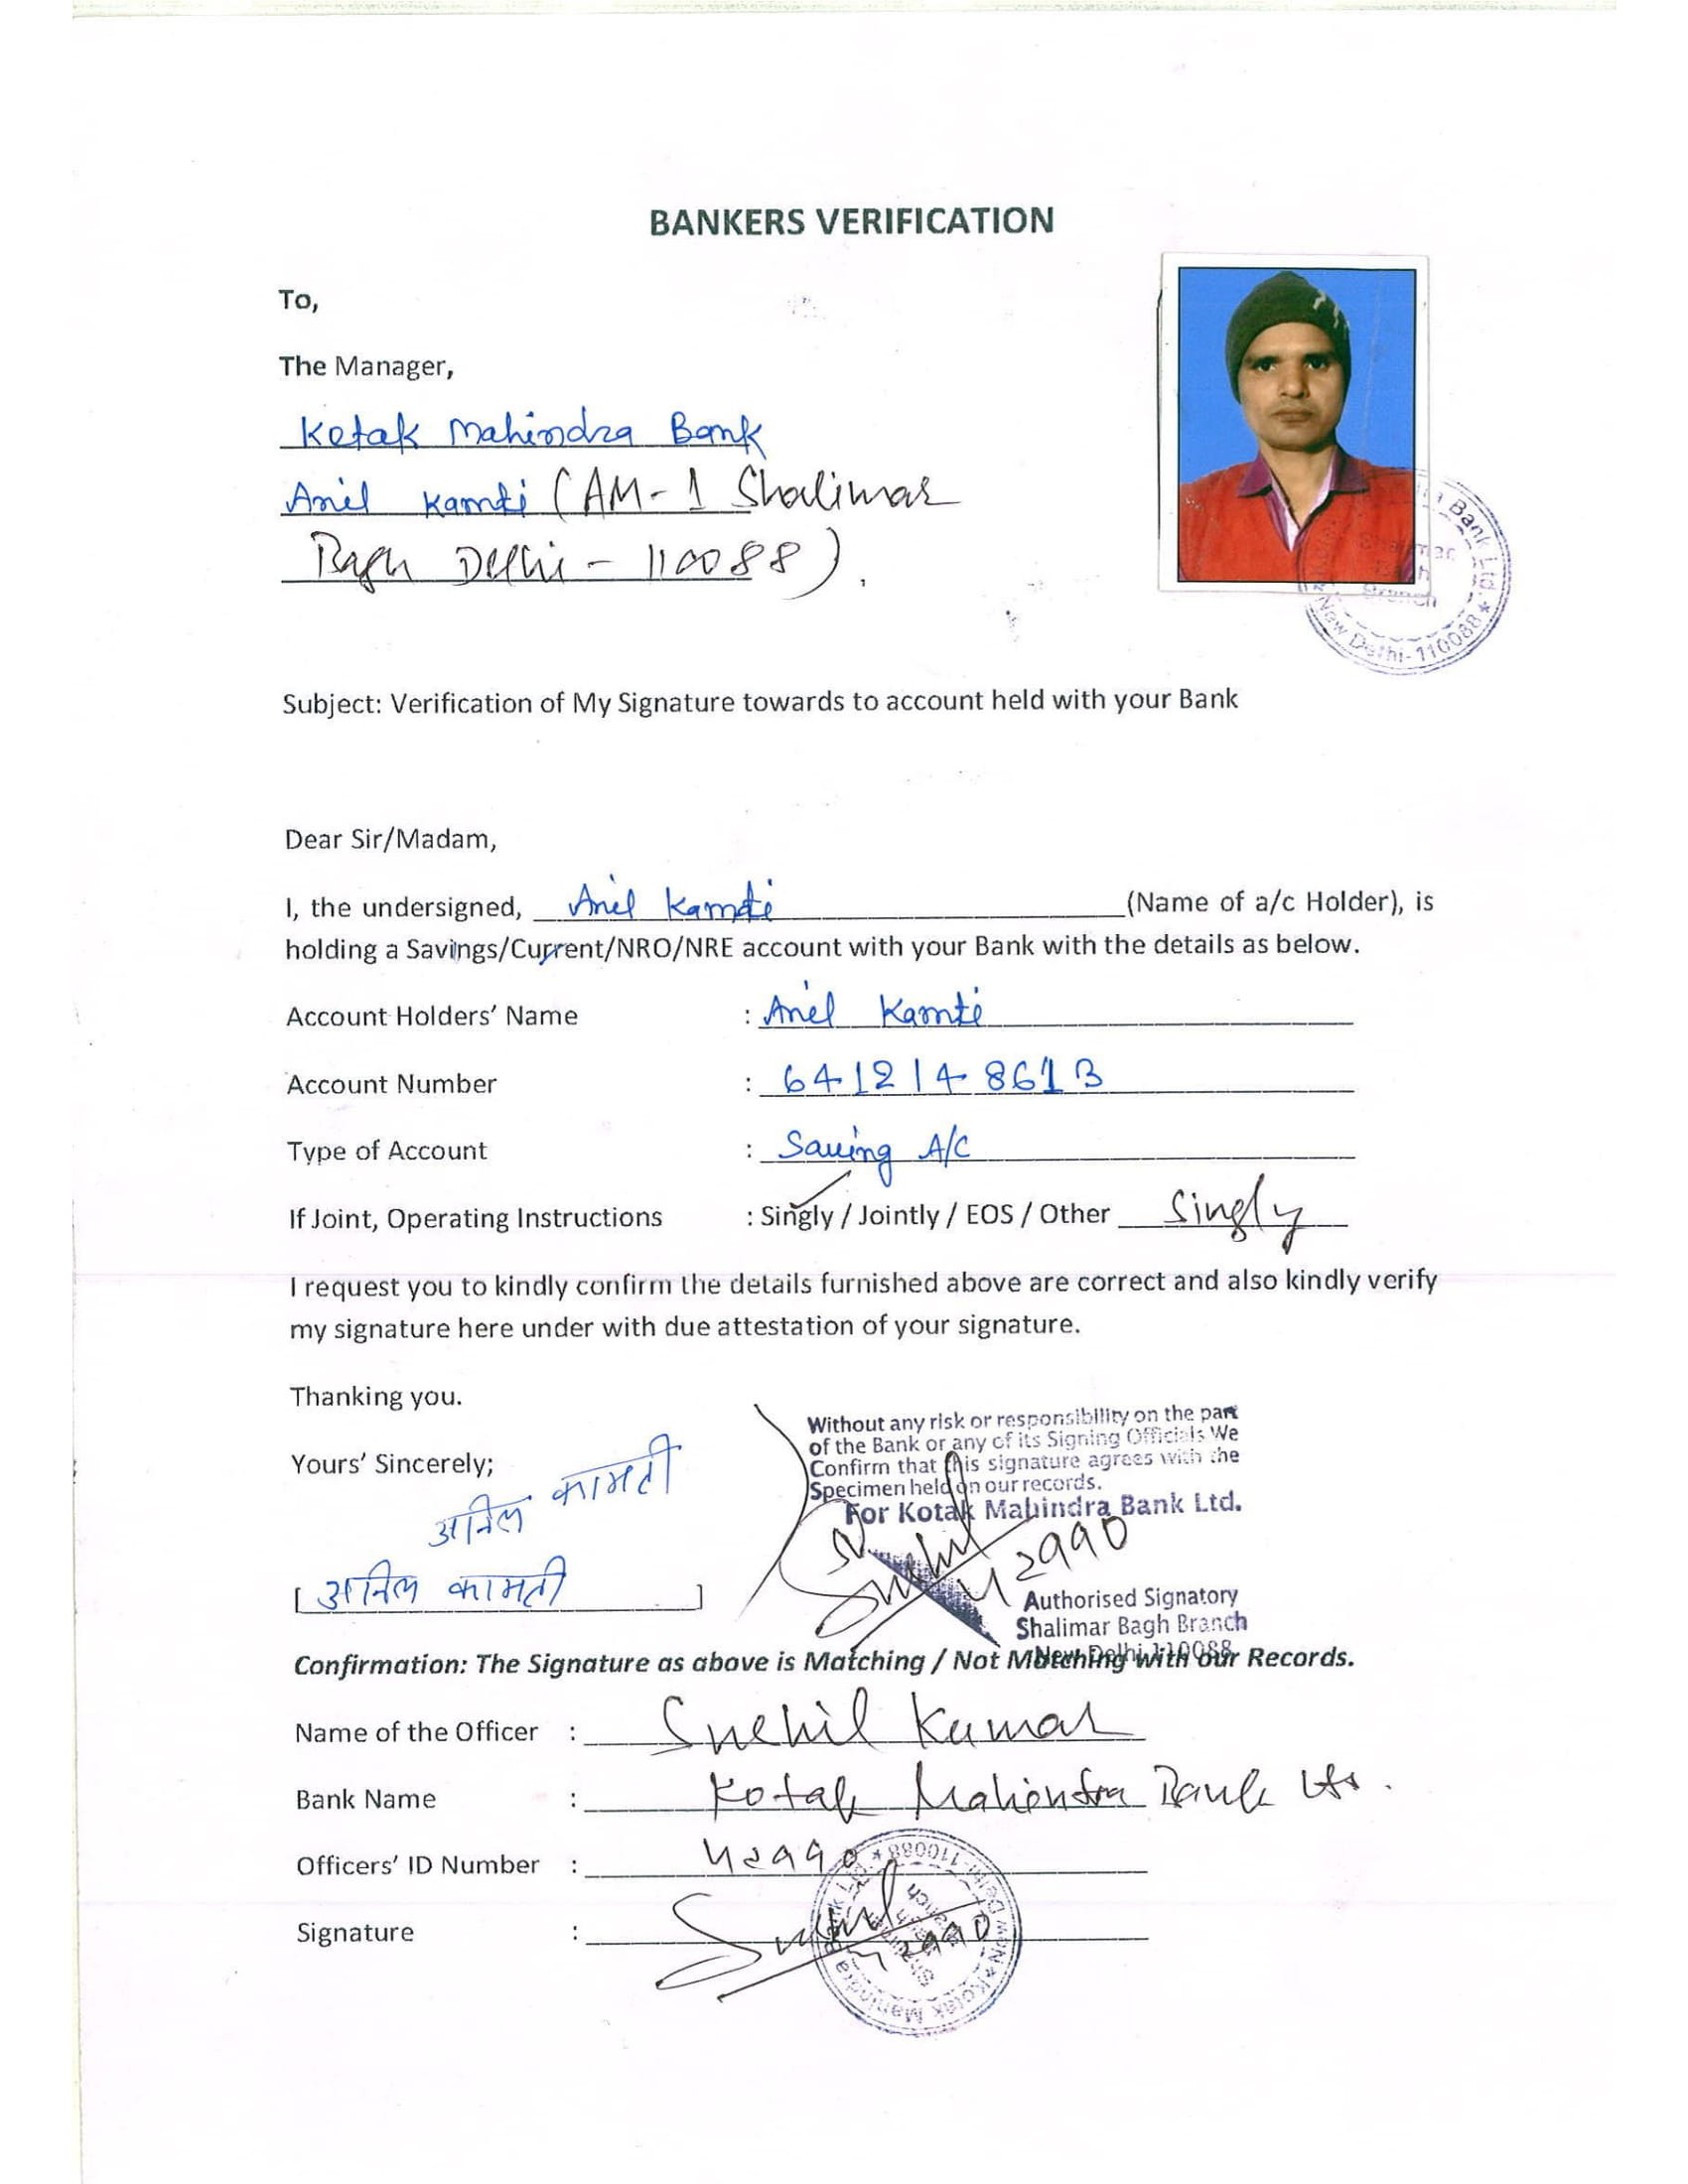 BANKERS VERIFICATION
To,
The Manager,
Kotak Mahindra Bank
Anil Kamti (AM-1 Shalimar
Bagh Delhi - 110088).
Bank Ltd. ★
New Delhi-110088
Branch
Subject: Verification of My Signature towards to account held with your Bank
Dear Sir/Madam,
I, the undersigned, Anil Kamti (Name of a/c Holder), is
holding a Savings/Current/NRO/NRE account with your Bank with the details as below.
Account Holders' Name : Anil Kamti
Account Number : 6412148613
Type of Account : Saving A/C
If Joint, Operating Instructions : Singly / Jointly / EOS / Other Singly
I request you to kindly confirm the details furnished above are correct and also kindly verify
my signature here under with due attestation of your signature.
Thanking you.
Yours' Sincerely;
अनिल कामती
[ अनिल कामती ]
Without any risk or responsibility on the part
of the Bank or any of its Signing Officials We
Confirm that this signature agrees with the
Specimen held on our records.
For Kotak Mahindra Bank Ltd.
42990
Authorised Signatory
Shalimar Bagh Branch
New Delhi-110088
Confirmation: The Signature as above is Matching / Not Matching with our Records.
Name of the Officer : Snehil Kumar
Bank Name : Kotak Mahindra Bank Ltd.
Officers' ID Number : 42990
Signature : 42990
Kotak Mahindra Bank Ltd. ★ New Delhi-110088 ★